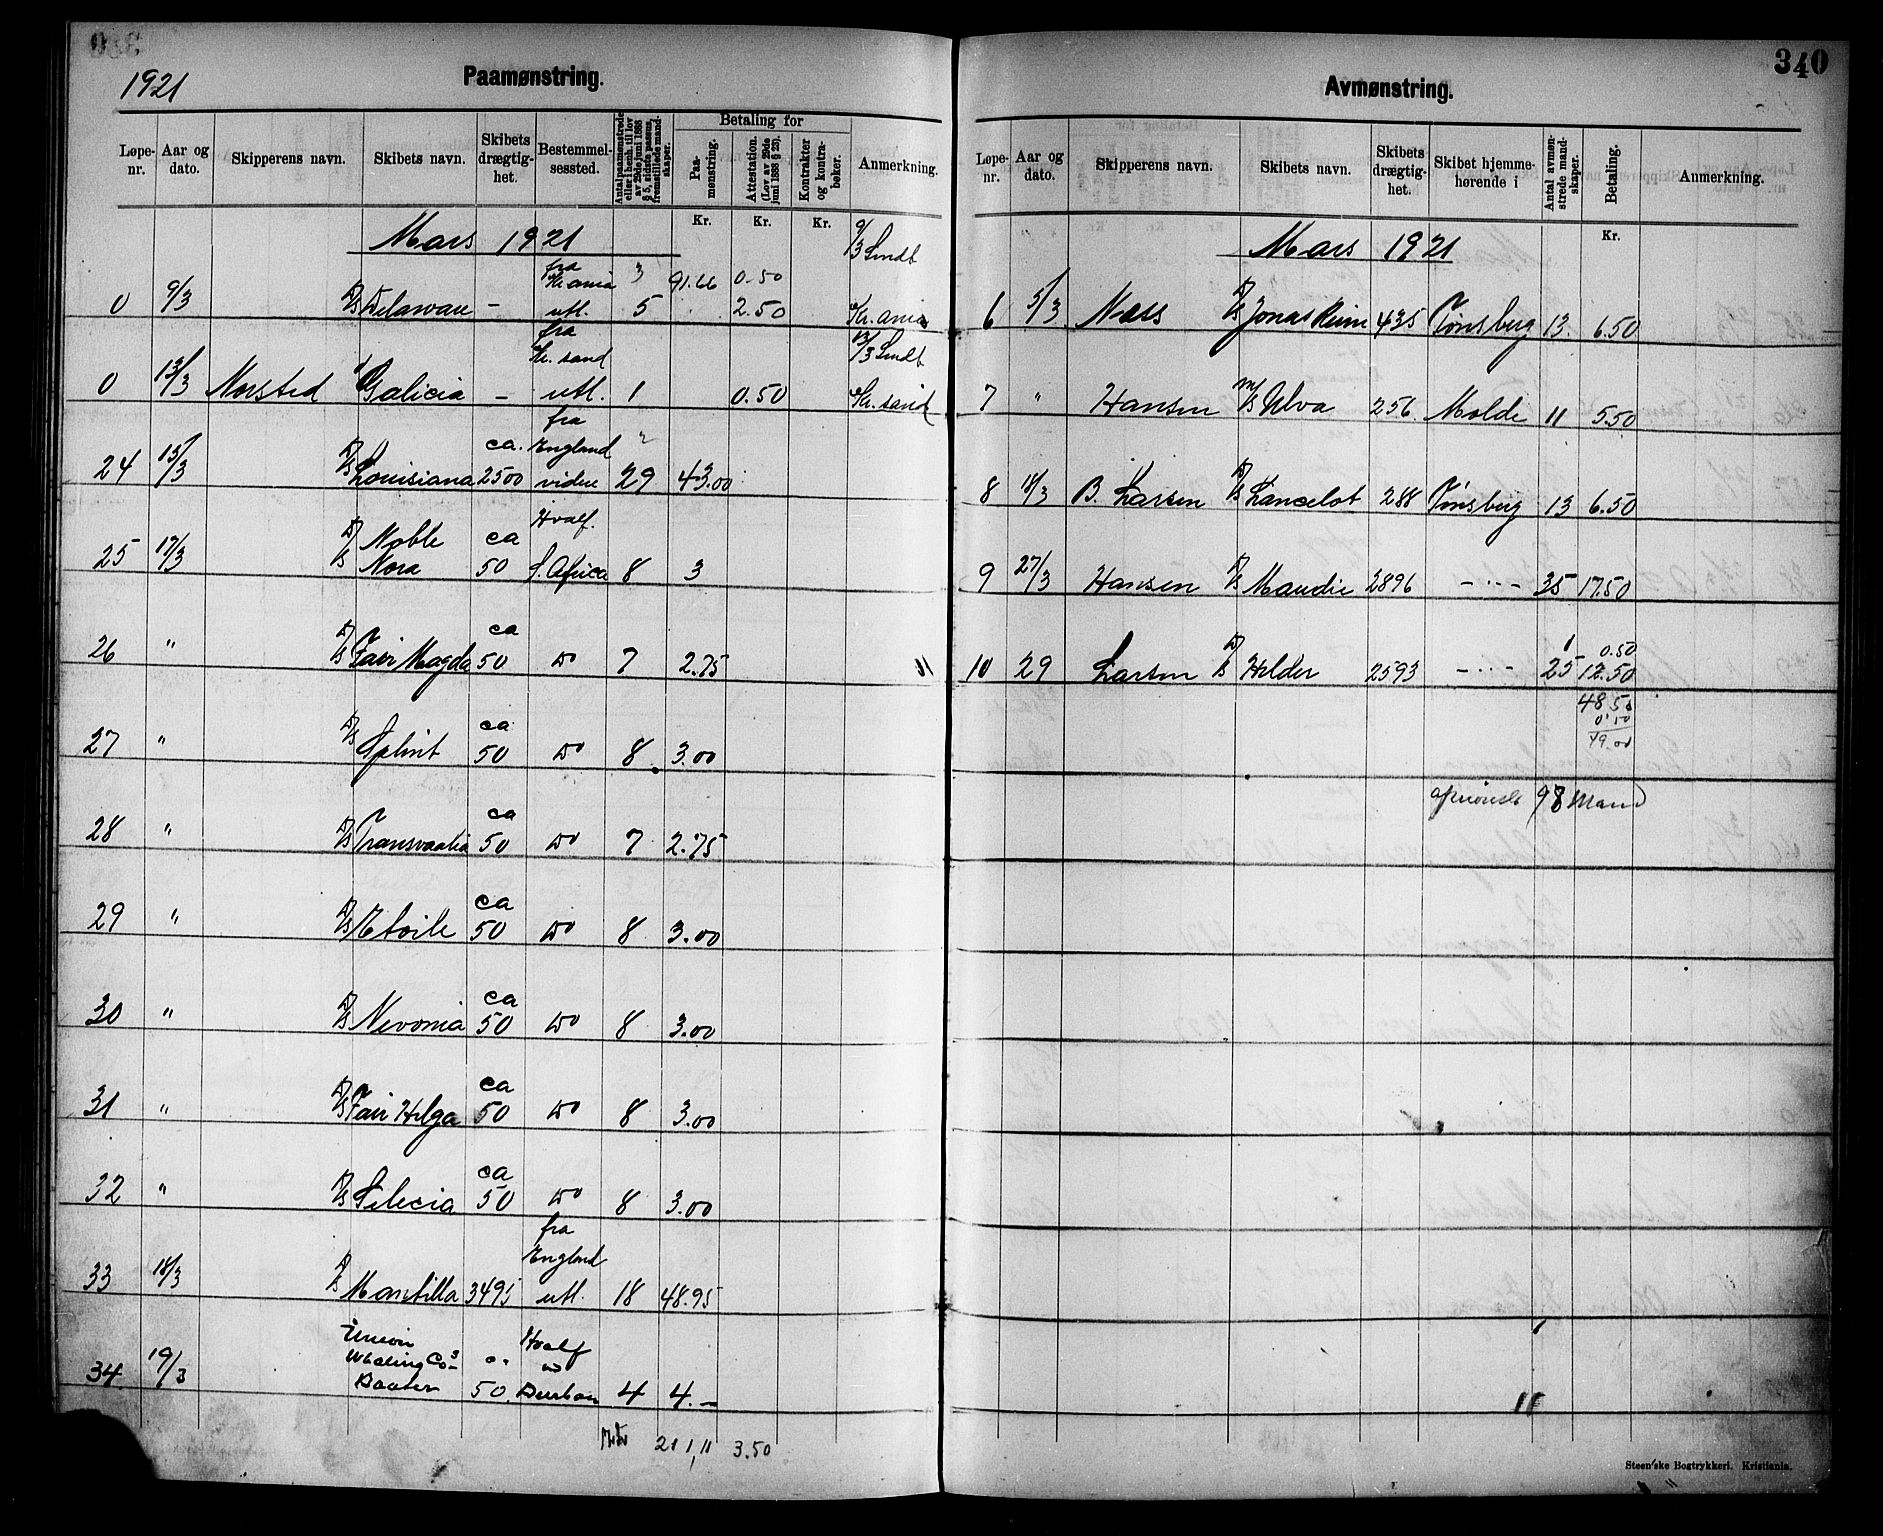 1921
Paamønstring.
Løpe-nr. Aar og dato. Skipperens navn. Skibets navn. Skibets drægtig-het. Bestemmel-sessted. Betaling for Paa-mønstring. Attestation. (Lov av 29de juni 1888 § 23). Kontrakter og kontra-bøker. Anmerkning.
Kr. Kr. Kr.
Mars 1921
9/3 Sendt
fra Kr.ania 3 91.66 0.50
0 9/3 D/S Delaware - utl. 5 2.50 Kr.ania
fra Kr.sand 13/3 Sendt
0 13/3 Norsted Galicia - utl. 1 0.50 Kr.sand
fra
ca. England
24 15/3 D/S Louisiana 2500 videre 29 43.00
Hvalf.
D/S Noble ca
25 17/3 Nora 50 S.Africa 8 3
ca
26 " D/S Fair Magda 50 Do 7 2.75
ca
27 " D/S Splint 50 Do 8 3.00
ca
28 " D/S Transvaalia 50 Do 7 2.75
ca
29 " D/S Etoile 50 Do 8 3.00
ca
30 " D/S Nevonia 50 Do 8 3.00
ca
31 " D/S Fair Helga 50 Do 8 3.00
ca
32 " D/S Selecia 50 Do 8 3.00
fra
England
33 18/3 D/S Mantilla 3495 utl. 18 48.95
Union Hvalf
Whaling Cos
34 19/3 Baater 50. Durban 4 4.-
21 1,11 3.50
340
Avmønstring.
Løpe-nr. Aar og dato. Skipperens navn. Skibets navn. Skibets drægtig-het. Skibet hjemme-hørende i Antal avmøn-strede mand-skaper. Betaling. Anmerkning.
Kr.
Mars 1921
6 5/3 Næss D/S Jonas Reim 435 Tønsberg 13. 6.50
7 " Hansen M/S Ulva 256. Molde 11 5.50
8 18/3 B. Larsen D/S Lancelot 288 Tønsberg 13 6.50
9 27/3 Hansen D/S Maudie 2896 -"- 35 17.50
1 0.50
10 29 Larsen D/S Helder 2593 -"- 25 12.50
48.50
0.50
49.00
98 Mand
Steen'ske Bogtrykkeri. Kristiania.